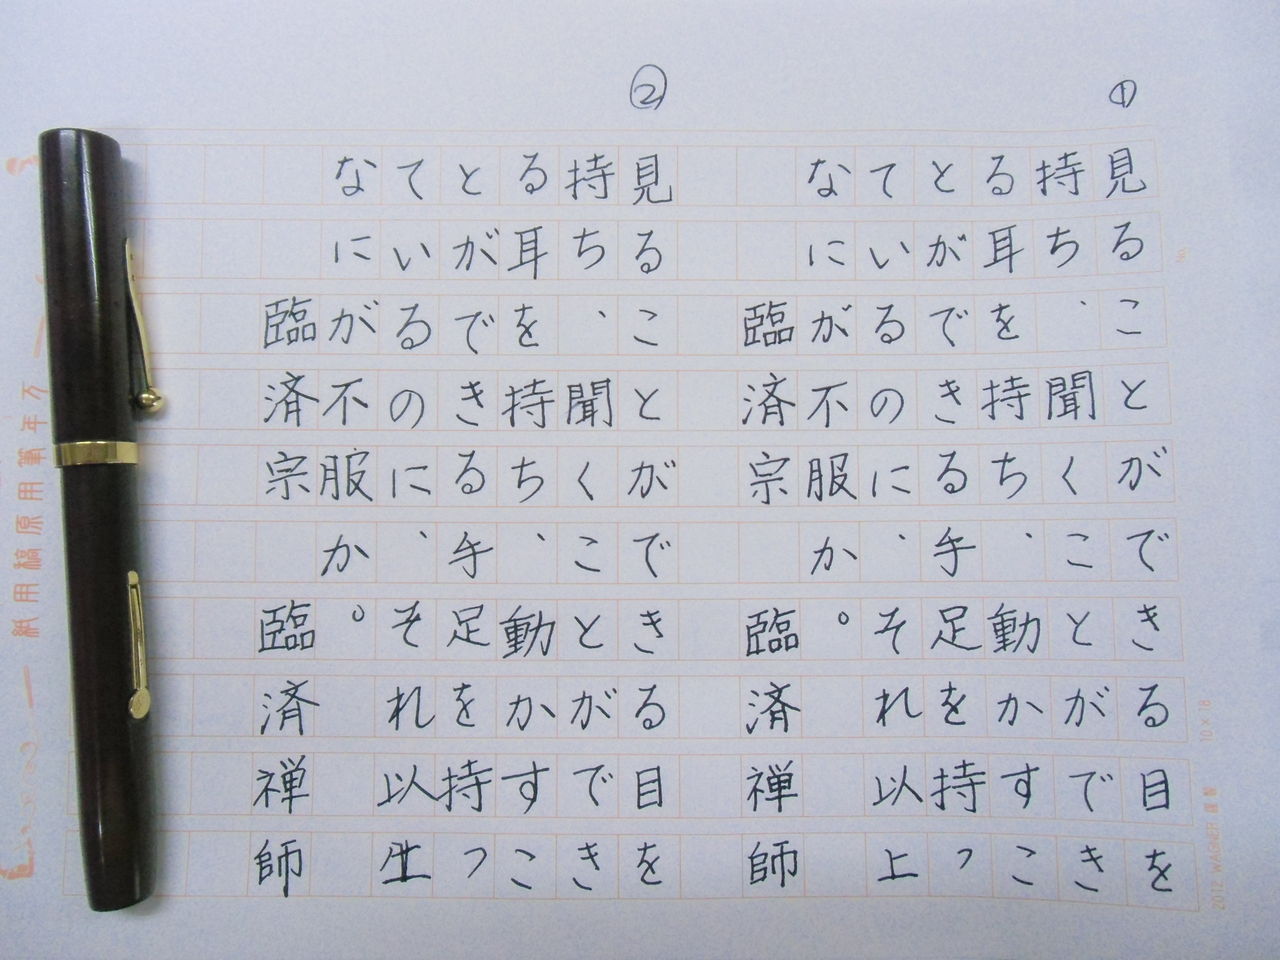 ①
見ることができる目を
持ち、聞くことができ
る耳を持ち、動かすこ
とができる手足を持っ
ているのに、それ以上
なにが不服か。
臨済宗 臨済禅師
②
見ることができる目を
持ち、聞くことができ
る耳を持ち、動かすこ
とができる手足を持っ
ているのに、それ以上
なにが不服か。
臨済宗 臨済禅師
No.
10×18
2012 WAGNER
万年筆用原稿用紙